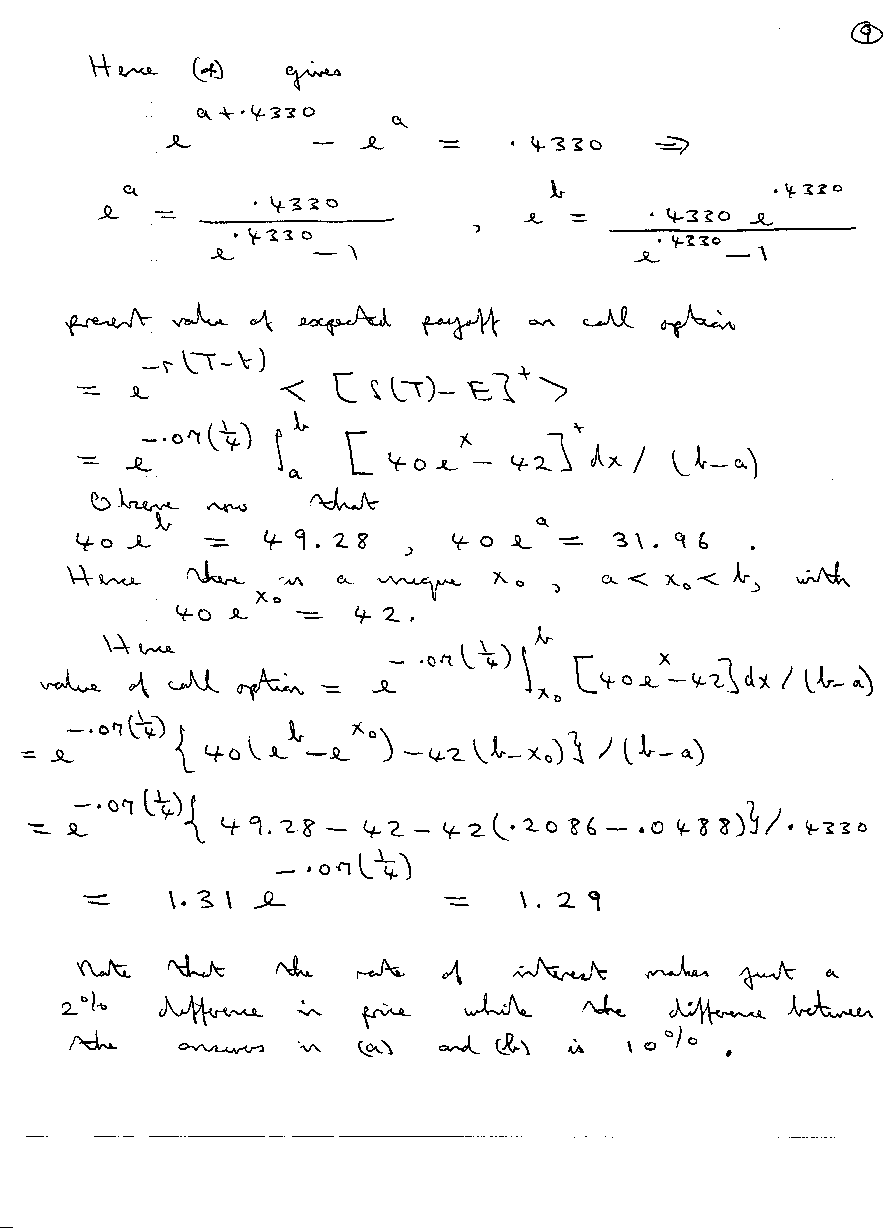 9
Hence (*) gives
e^{a+.4330} - e^{a} = .4330 ⇒
e^{a} = .4330 / (e^{.4330} - 1) , e^{b} = .4330 e^{.4330} / (e^{.4330} - 1)
present value of expected payoff on call option
= e^{-r(T-t)} < [S(T)-E]^{+} >
= e^{-.07(1/4)} ∫_{a}^{b} [40e^{x} - 42]^{+} dx / (b-a)
Observe now that
40e^{b} = 49.28 , 40e^{a} = 31.96 .
Hence there is a unique x_{0} , a < x_{0} < b, with
40e^{x_{0}} = 42.
Hence
value of call option = e^{-.07(1/4)} ∫_{x_{0}}^{b} [40e^{x} - 42] dx / (b-a)
= e^{-.07(1/4)} { 40(e^{b} - e^{x_{0}}) - 42(b-x_{0})} / (b-a)
= e^{-.07(1/4)} { 49.28 - 42 - 42(.2086 - .0488)} / .4330
= 1.31 e^{-.07(1/4)} = 1.29
Note that the rate of interest makes just a
2% difference in price while the difference between
the answers in (a) and (b) is 10%.